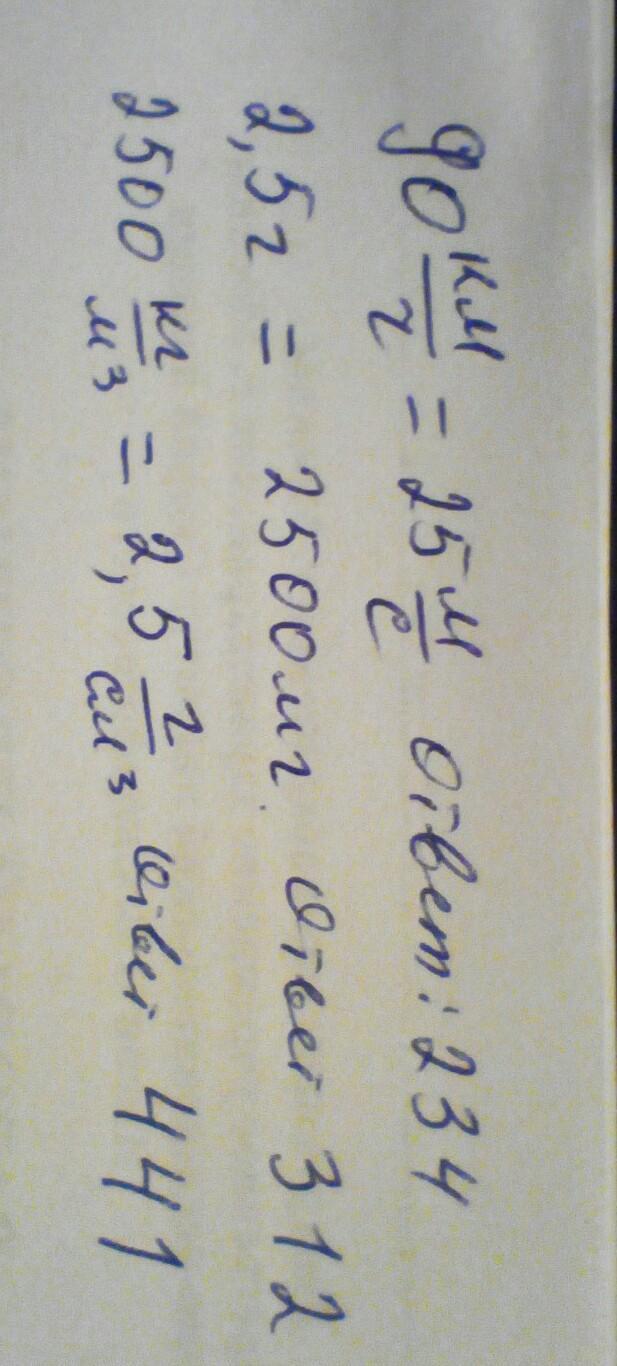 90 км/ч = 25 м/с Ответ: 234
2,5г = 2500мг. Ответ 312
2500 кг/м3 = 2,5 г/см3 Ответ 441